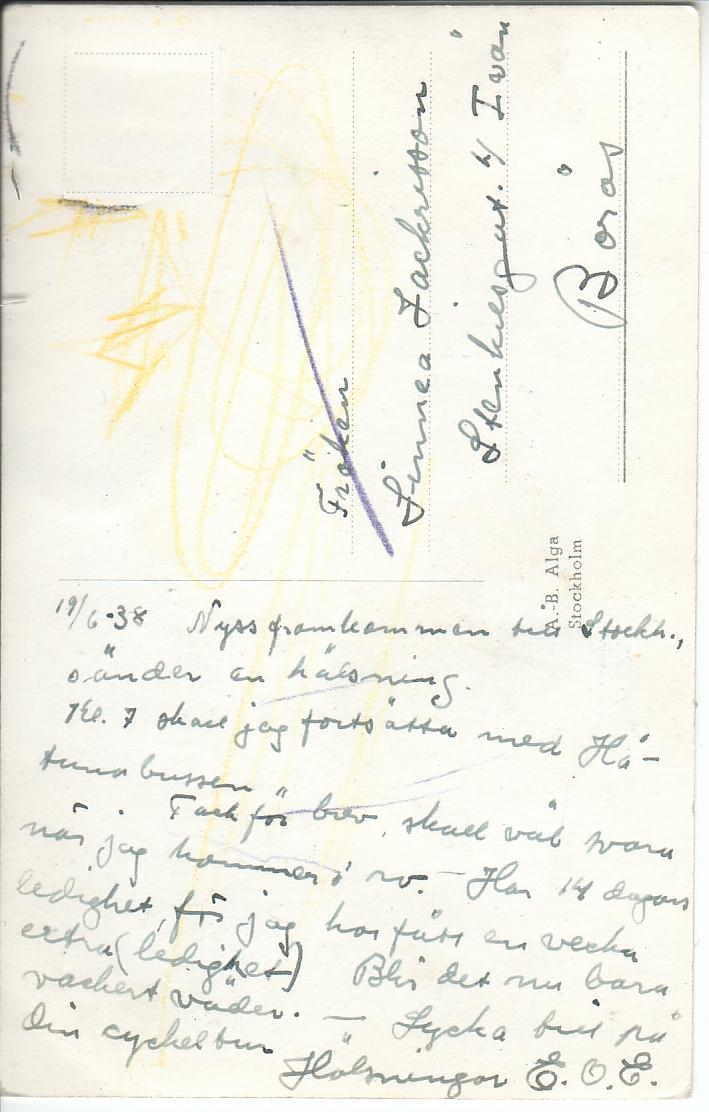 Fröken
Linnea Zackrisson
Stenkilsgat. 4 I vån
Borås
A.-B. Alga
Stockholm
19/6-38 Nyss framkommen till Stockh.,
sänder en hälsning.
Kl. 7 skall jag fortsätta med Hå-
tunabussen
Tack för brev, skall väl svara
när jag kommer i ro. - Har 14 dagars
ledighet, för jag har fått en vecka
extra (ledighet) Blir det nu bara
vackert väder. — Lycka till på
din cykeltur
Hälsningar E.O.E.